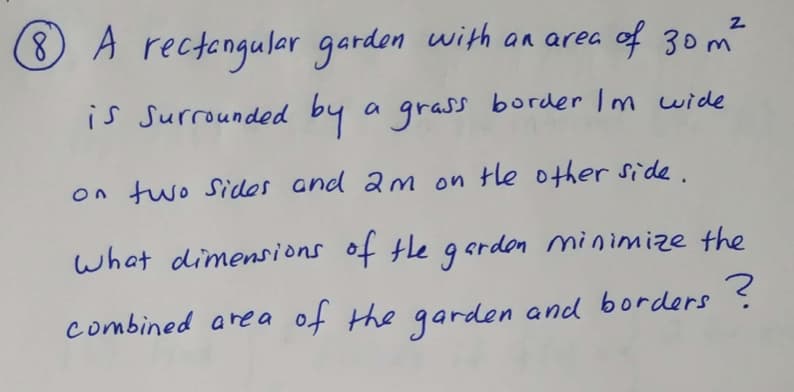 ⑧ A rectangular garden with an area of 30 m²
is surrounded by a grass border 1m wide
on two sides and 2m on the other side.
What dimensions of the garden minimize the
combined area of the garden and borders?